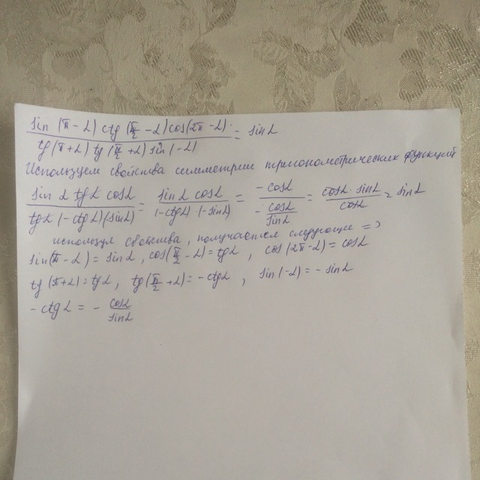 sin (π - α) ctg (π/2 - α) cos(2π - α) / tg (π + α) tg (π/2 + α) sin (-α) = sin α
Используем свойства симметрии тригонометрических функций
sin α tg α cos α / tg α (-ctg α) (sin α) = sin α cos α / (-ctg α) (-sin α) = -cos α / - cos α / sin α = cos α · sin α / cos α = sin α
используя свойства, получается следующие =>
sin(π - α) = sin α, cos(π/2 - α) = tg α, cos (2π - α) = cos α
tg (π + α) = tg α, tg(π/2 + α) = - ctg α, sin (-α) = - sin α
- ctg α = - cos α / sin α